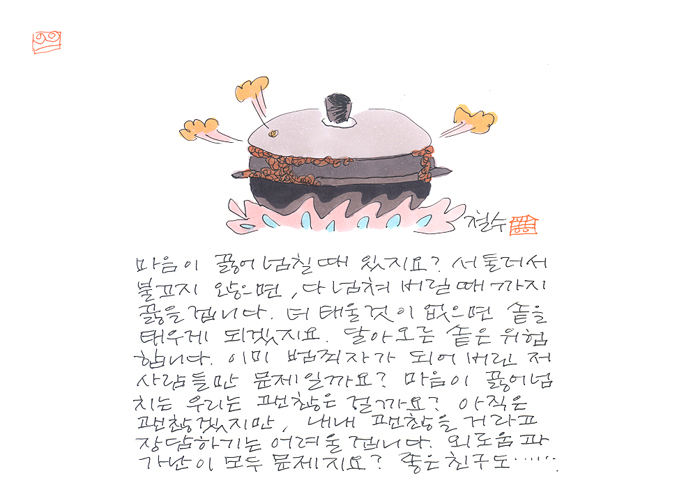 철수
마음이 끓어 넘칠 때 있지요? 서둘러서
불끄지 않으면, 다 넘쳐 버릴 때 까지
끓을겁니다. 더 태울것이 없으면 솥을
태우게 되겠지요. 달아오르는 솥은 위험
합니다. 이미 범죄자가 되어 버린 저
사람들만 문제일까요? 마음이 끓어넘
치는 우리는 괜찮은 걸까요? 아직은
괜찮겠지만, 내내 괜찮을 거라고
장담하기는 어려울 겁니다. 외로움과
가난이 모두 문제지요? 좋은 친구도……